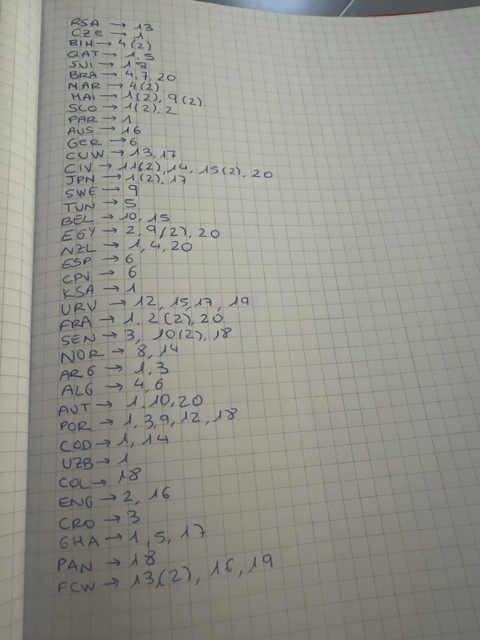 RSA → 13
CZE → 1
BIH → 4(2)
QAT → 1,5
SUI → 13
BRA → 4,7,20
MAR → 4(2)
HAI → 1(2), 9(2)
SCO → 1(2),2
PAR → 1
AUS → 16
GER → 6
CUW → 13,17
CIV → 11(2),14, 15(2), 20
JPN → 1(2),17
SWE → 9
TUN → 5
BEL → 10,15
EGY → 2,9(2),20
NZL → 1,4,20
ESP → 6
CPV → 6
KSA → 1
URU → 12, 15,17, 19
FRA → 1, 2(2), 20
SEN → 3, 10(2), 18
NOR → 8,14
ARG → 1,3
ALG → 4,6
AUT → 1,10,20
POR → 1,3,9,12,18
COD → 1,14
UZB → 1
COL → 18
ENG → 2, 16
CRO → 3
GHA → 1,5,17
PAN → 18
FCW → 13(2), 16,19